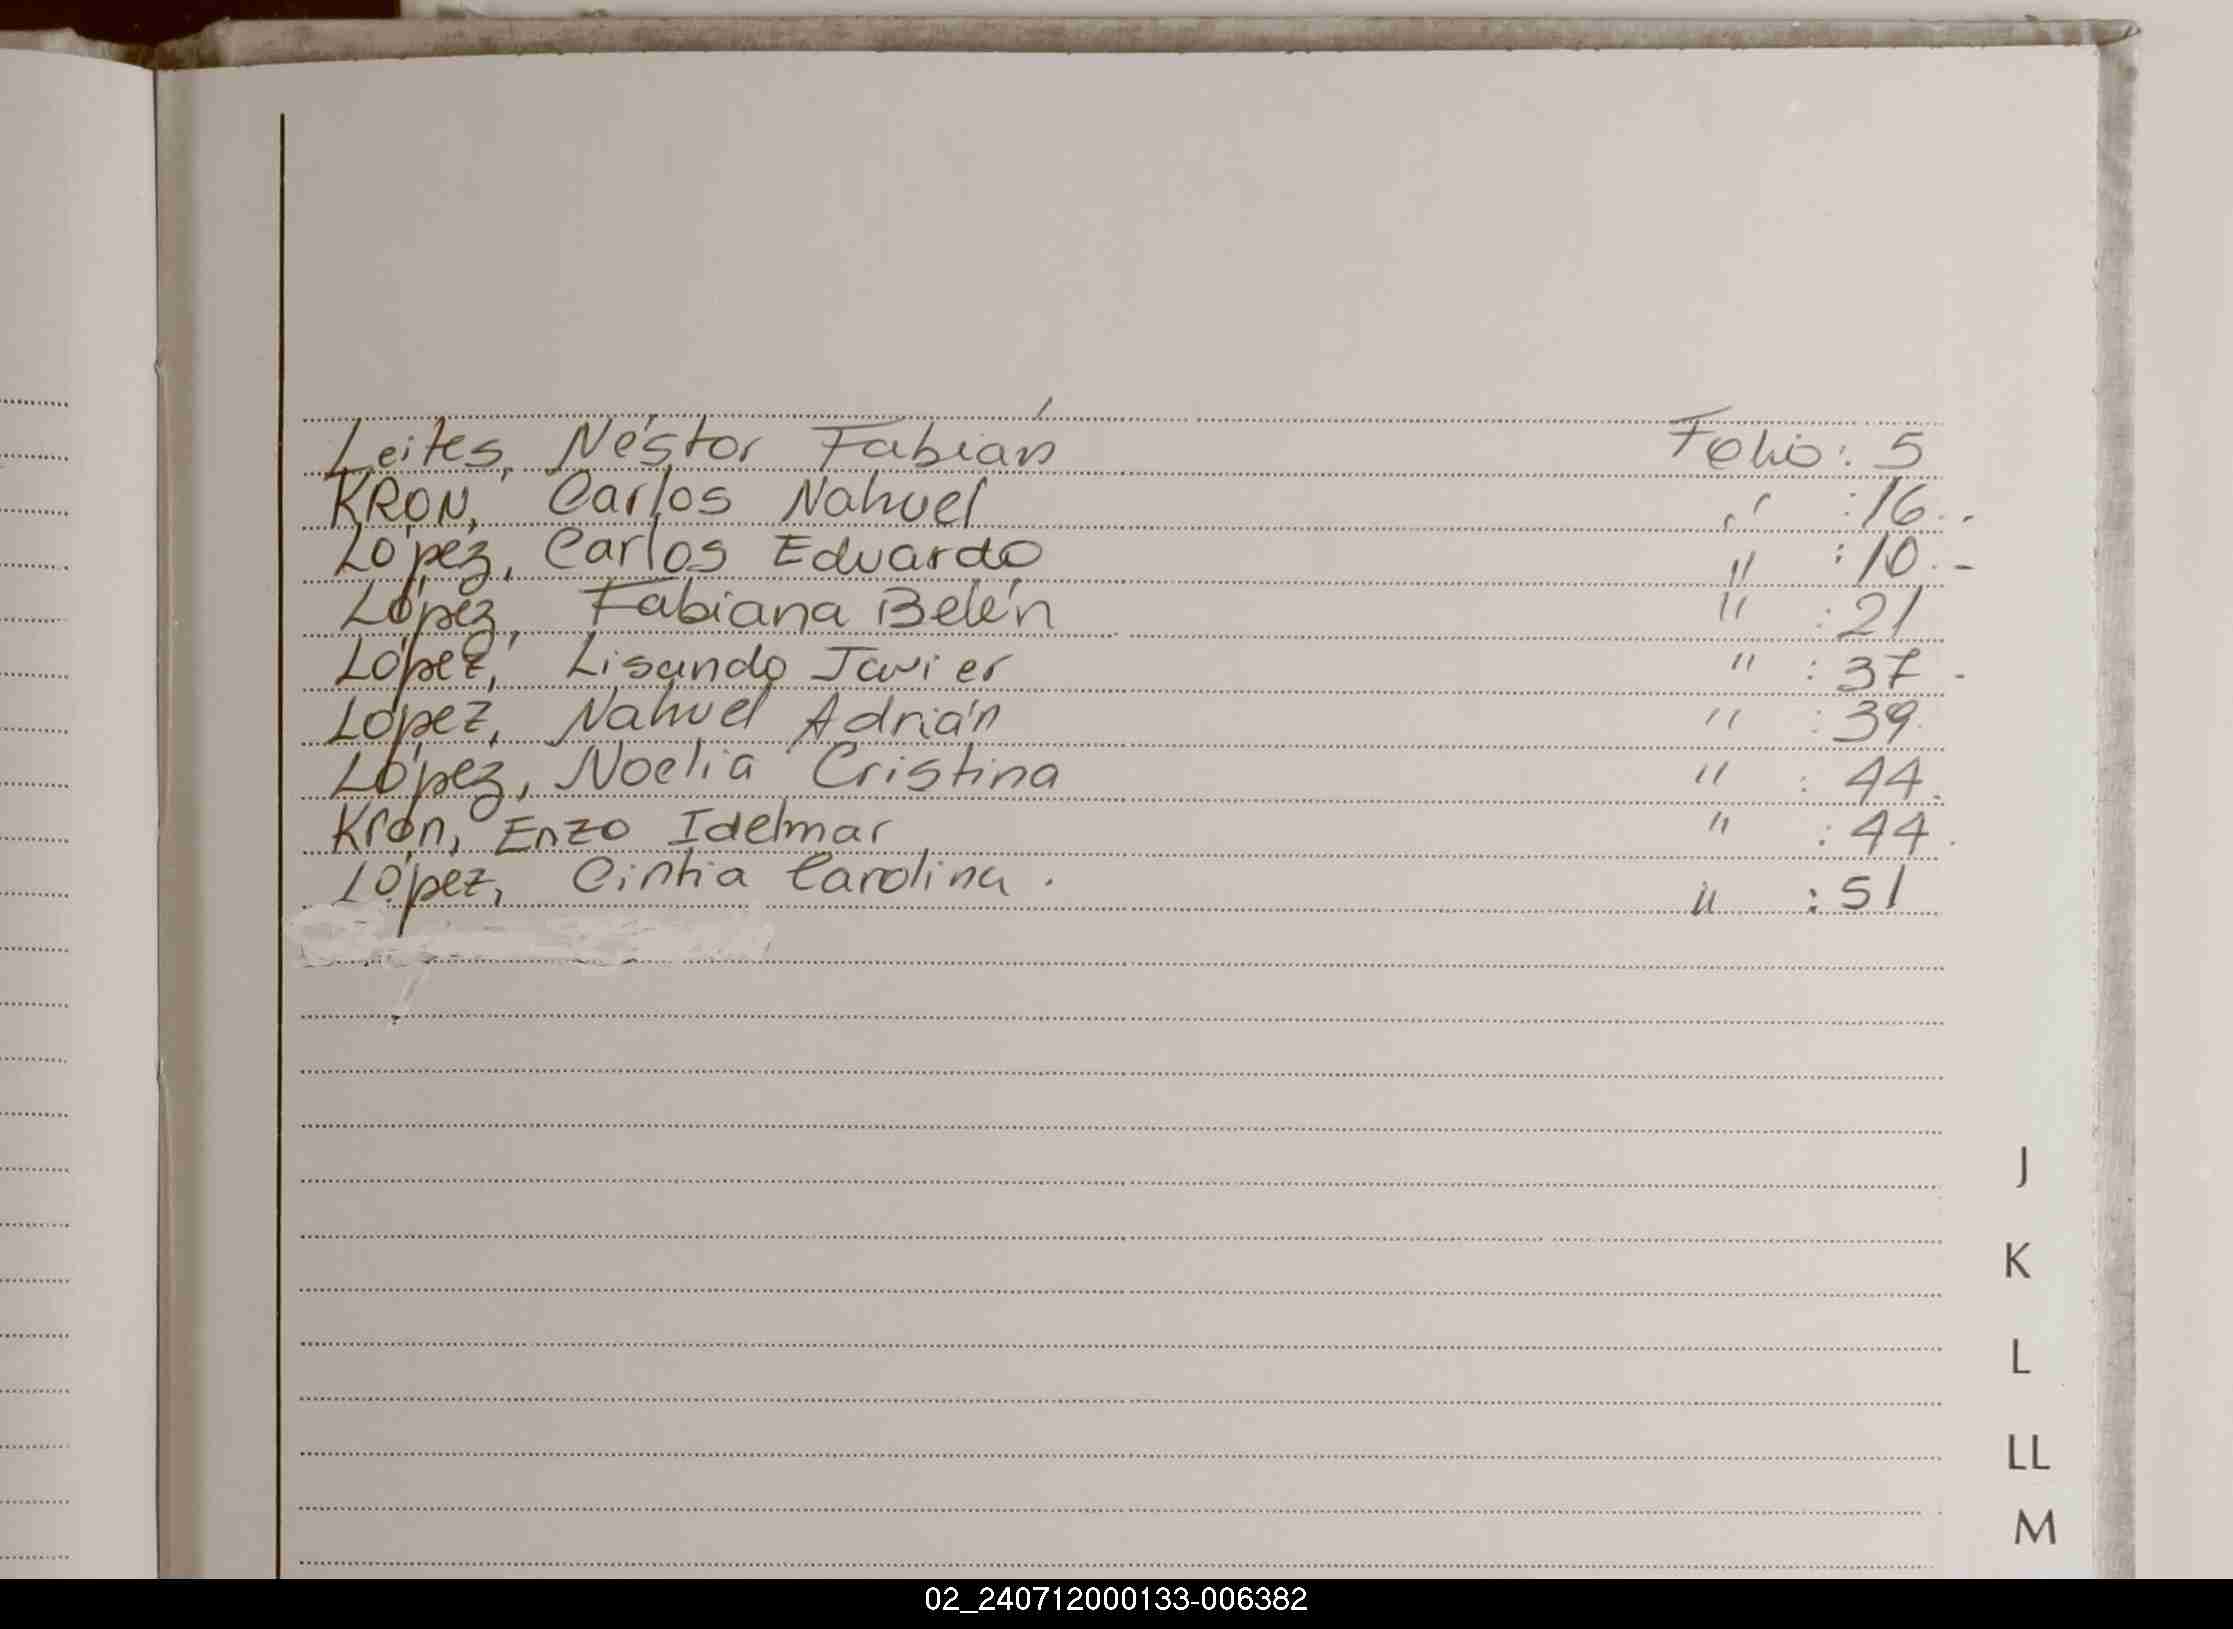 Leites, Néstor Fabián Folio: 5
KRON, Carlos Nahuel " : 16.-
López, Carlos Eduardo " : 10.-
López, Fabiana Belén " : 21
López, Lisando Javier " : 37-
López, Nahuel Adrián " : 39.
López, Noelia Cristina " : 44.
Kron, Enzo Idelmar " : 44.
López, Cinthia Carolina. " : 51
J
K
L
LL
M
02_240712000133-006382